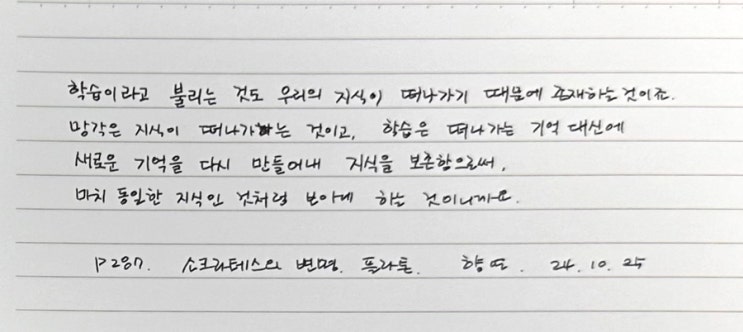 학습이라고 불리는 것도 우리의 지식이 떠나가기 때문에 존재하는것이죠.
망각은 지식이 떠나가는 것이고, 학습은 떠나가는 기억 대신에
새로운 기억을 다시 만들어내 지식을 보존함으로써,
마치 동일한 지식인 것처럼 보이게 하는 것이니까요.
P287. 소크라테스의 변명. 플라톤. 24. 10. 25